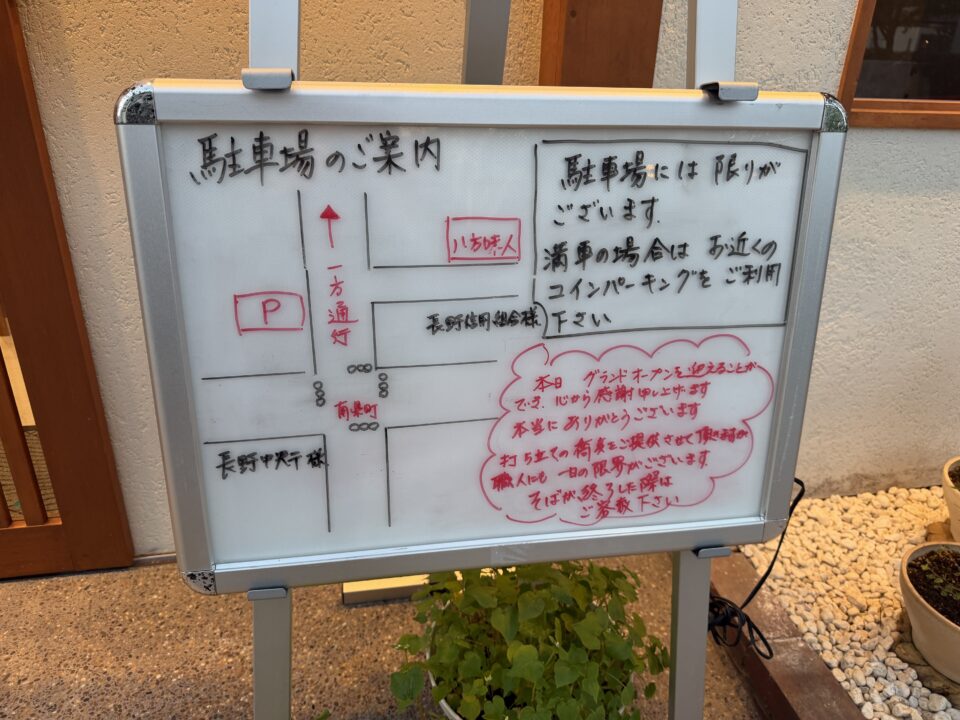 駐車場のご案内
駐車場には 限りが
ございます.
満車の場合は お近くの
コインパーキングをご利用
下さい
一方通行
八方味人
P
長野信用組合様
南県町
長野中央 様
本日 グランドオープンを迎えることが
でき、心から感謝申し上げます
本当にありがとうございます
打ち立ての蕎麦をご提供させて頂きますが
職人にも 一日の限界がございます.
そばが、終了した際は
ご容赦下さい